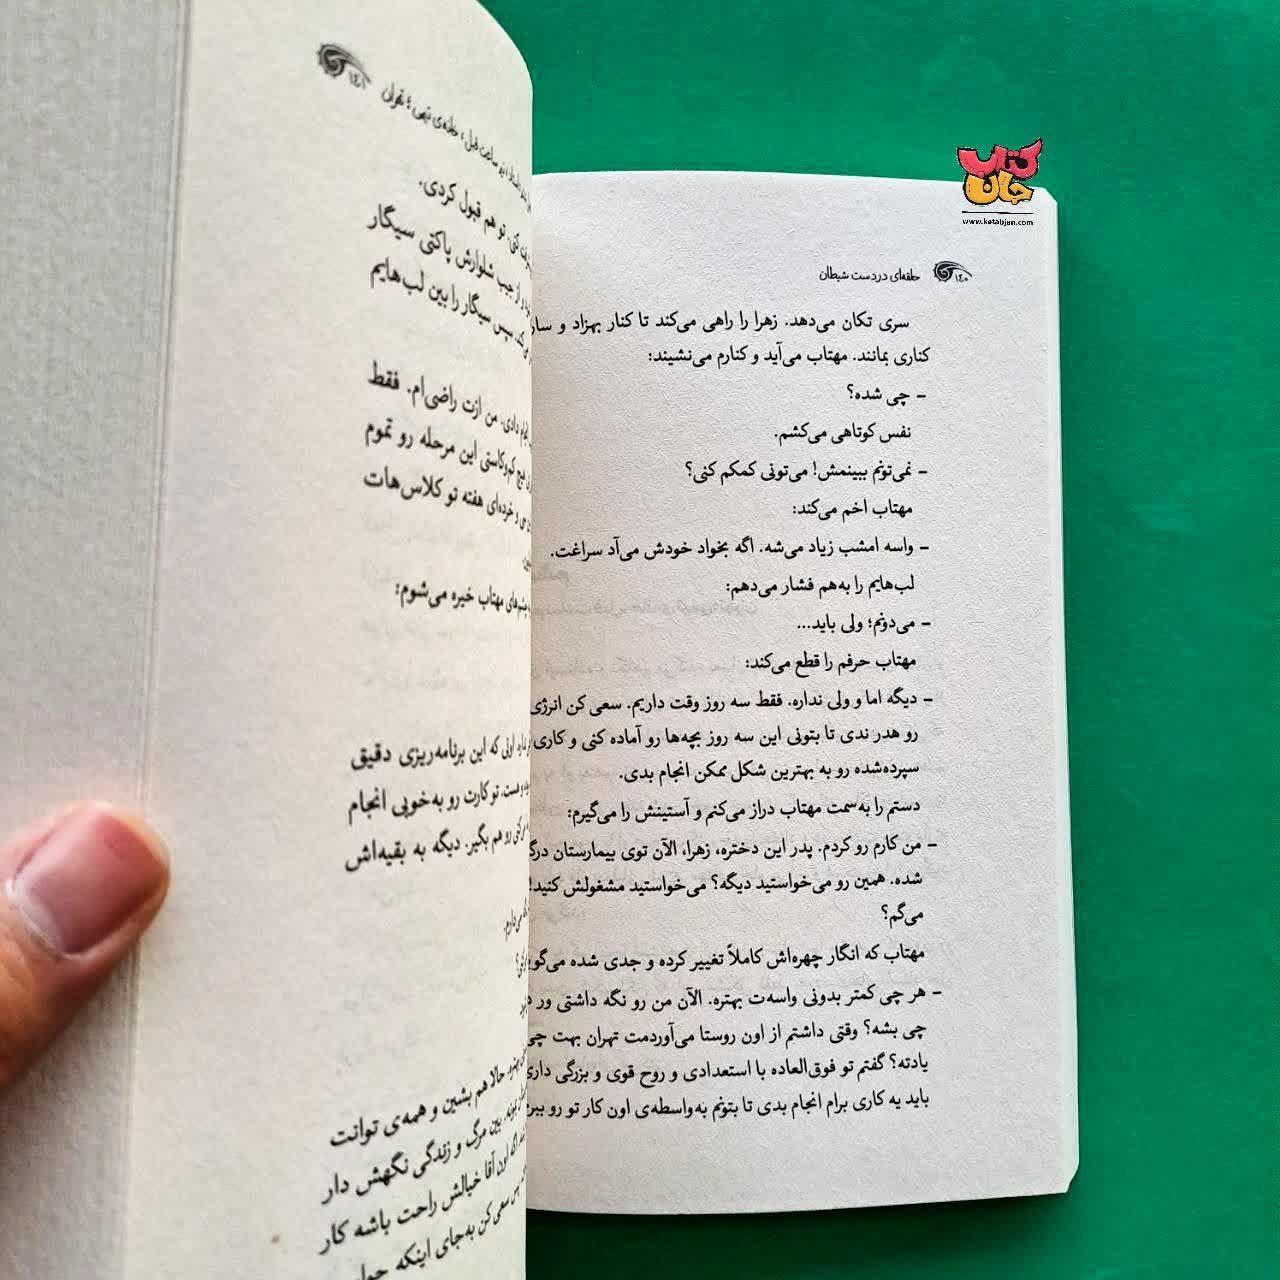 کتاب
جان
www.ketabjan.com
۱۴۰ حلقه‌ای در دست شیطان
سری تکان می‌دهد. زهرا را راهی می‌کند تا کنار بهزاد و
کناری بمانند. مهتاب می‌آید و کنارم می‌نشیند:
- چی شده؟
نفس کوتاهی می‌کشم.
- نمی‌تونم ببینمش! می‌تونی کمکم کنی؟
مهتاب اخم می‌کند:
- واسه امشب زیاد می‌شه. اگه بخواد خودش می‌آد سراغت.
لب‌هایم را به‌هم فشار می‌دهم:
- می‌دونم؛ ولی باید...
مهتاب حرفم را قطع می‌کند:
- دیگه اما و ولی نداره. فقط سه روز وقت داریم. سعی کن انرژی
رو هدر ندی تا بتونی این سه روز بچه‌ها رو آماده کنی و کاری
سپرده‌شده رو به بهترین شکل ممکن انجام بدی.
دستم را به‌سمت مهتاب دراز می‌کنم و آستینش را می‌گیرم:
- من کارم رو کردم. پدر این دختره، زهرا، الآن توی بیمارستان
شده. همین رو می‌خواستید دیگه؟ می‌خواستید مشغولش کنید!
می‌گم؟
مهتاب که انگار چهره‌اش کاملاً تغییر کرده و جدی شده
- هر چی کمتر بدونی واسه‌ت بهتره. الآن من رو نگه داشتی ور
چی بشه؟ وقتی داشتم از اون روستا می‌آوردمت تهران بهت
یادته؟ گفتم تو فوق‌العاده با استعدادی و روح قوی و بزرگی داری
باید یه کاری برام انجام بدی تا بتونم به‌واسطه‌ی اون کار تو رو
ساعت قبل، خانه‌ی تهی؛ تهران ۱۴۱
کنی. تو هم قبول کردی.
و از جیب شلوارش پاکتی سیگار
سپس سیگار را بین لب‌هایم
دادی. من ازت راضی‌ام. فقط
هیچ کم‌وکاستی این مرحله رو تموم
و خرده‌ای هفته تو کلاس‌هات
چشم‌های مهتاب خیره می‌شوم:
اونی که این برنامه‌ریزی دقیق
تو کارت رو به‌خوبی انجام
رو هم بگیر. دیگه به بقیه‌اش
بهتره. حالا هم بشین و همه‌ی توانت
بین مرگ و زندگی نگهش دار
اون آقا خیالش راحت باشه کار
سعی کن به‌جای اینکه